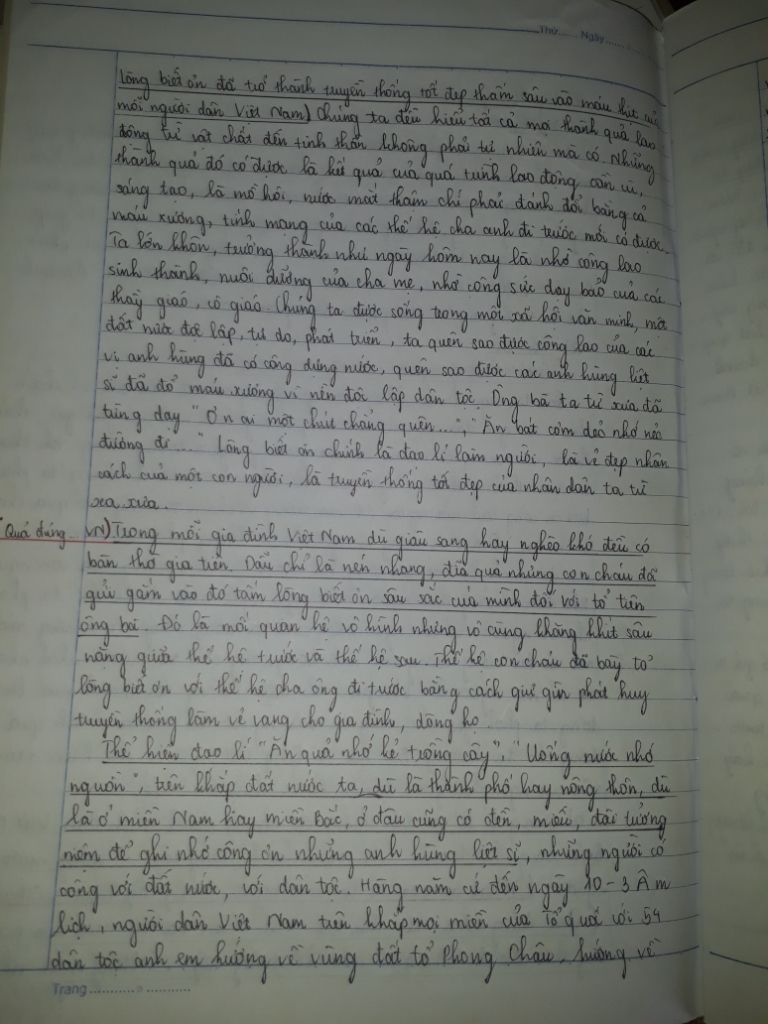 Thứ...... Ngày......
lòng biết ơn đã trở thành truyền thống tốt đẹp thấm sâu vào máu thịt của
mỗi người dân Việt Nam) Chúng ta đều hiểu tất cả mọi thành quả lao
động từ vật chất đến tinh thần không phải tự nhiên mà có. Những
thành quả đó có được là kết quả của quá trình lao động cần cù,
sáng tạo, là mồ hôi, nước mắt thậm chí phải đánh đổi bằng cả
máu xương, tính mạng của các thế hệ cha anh đi trước mới có được.
Ta lớn khôn, trưởng thành như ngày hôm nay là nhờ công lao
sinh thành, nuôi dưỡng của cha mẹ, nhờ công sức dạy bảo của các
thầy giáo, cô giáo. Chúng ta được sống trong một xã hội văn minh, một
đất nước độc lập, tự do, phát triển, ta quên sao được công lao của các
vị anh hùng đã có công dựng nước, quên sao được các anh hùng liệt
sĩ đã đổ máu xương vì nền độc lập dân tộc. Ông bà ta từ xưa đã
từng dạy "Ơn ai một chút chẳng quên...", "Ăn bát cơm dẻo nhớ nẻo
đường đi..." Lòng biết ơn chính là đạo lí làm người, là vẻ đẹp nhân
cách của một con người, là truyền thống tốt đẹp của nhân dân ta từ
xa xưa.
* Quả đúng... VN) Trong mỗi gia đình Việt Nam dù giàu sang hay nghèo khó đều có
bàn thờ gia tiên. Dẫu chỉ là nén nhang, đĩa quả nhưng con cháu đã
gửi gắm vào đó tấm lòng biết ơn sâu sắc của mình đối với tổ tiên
ông bà. Đó là mối quan hệ vô hình nhưng vô cùng khăng khít sâu
nặng giữa thế hệ trước và thế hệ sau. Thế hệ con cháu đã bày tỏ
lòng biết ơn với thế hệ cha ông đi trước bằng cách giữ gìn phát huy
truyền thống làm vẻ vang cho gia đình, dòng họ.
Thể hiện đạo lí "Ăn quả nhớ kẻ trồng cây", "Uống nước nhớ
nguồn", trên khắp đất nước ta, dù là thành phố hay nông thôn, dù
là ở miền Nam hay miền Bắc, ở đâu cũng có đền, miếu, đài tưởng
niệm để ghi nhớ công ơn những anh hùng liệt sĩ, những người có
công với đất nước, với dân tộc. Hàng năm cứ đến ngày 10-3 Âm
lịch, người dân Việt Nam trên khắp mọi miền của Tổ quốc với 54
dân tộc anh em hướng về vùng đất tổ Phong Châu, hướng về
Trang......................